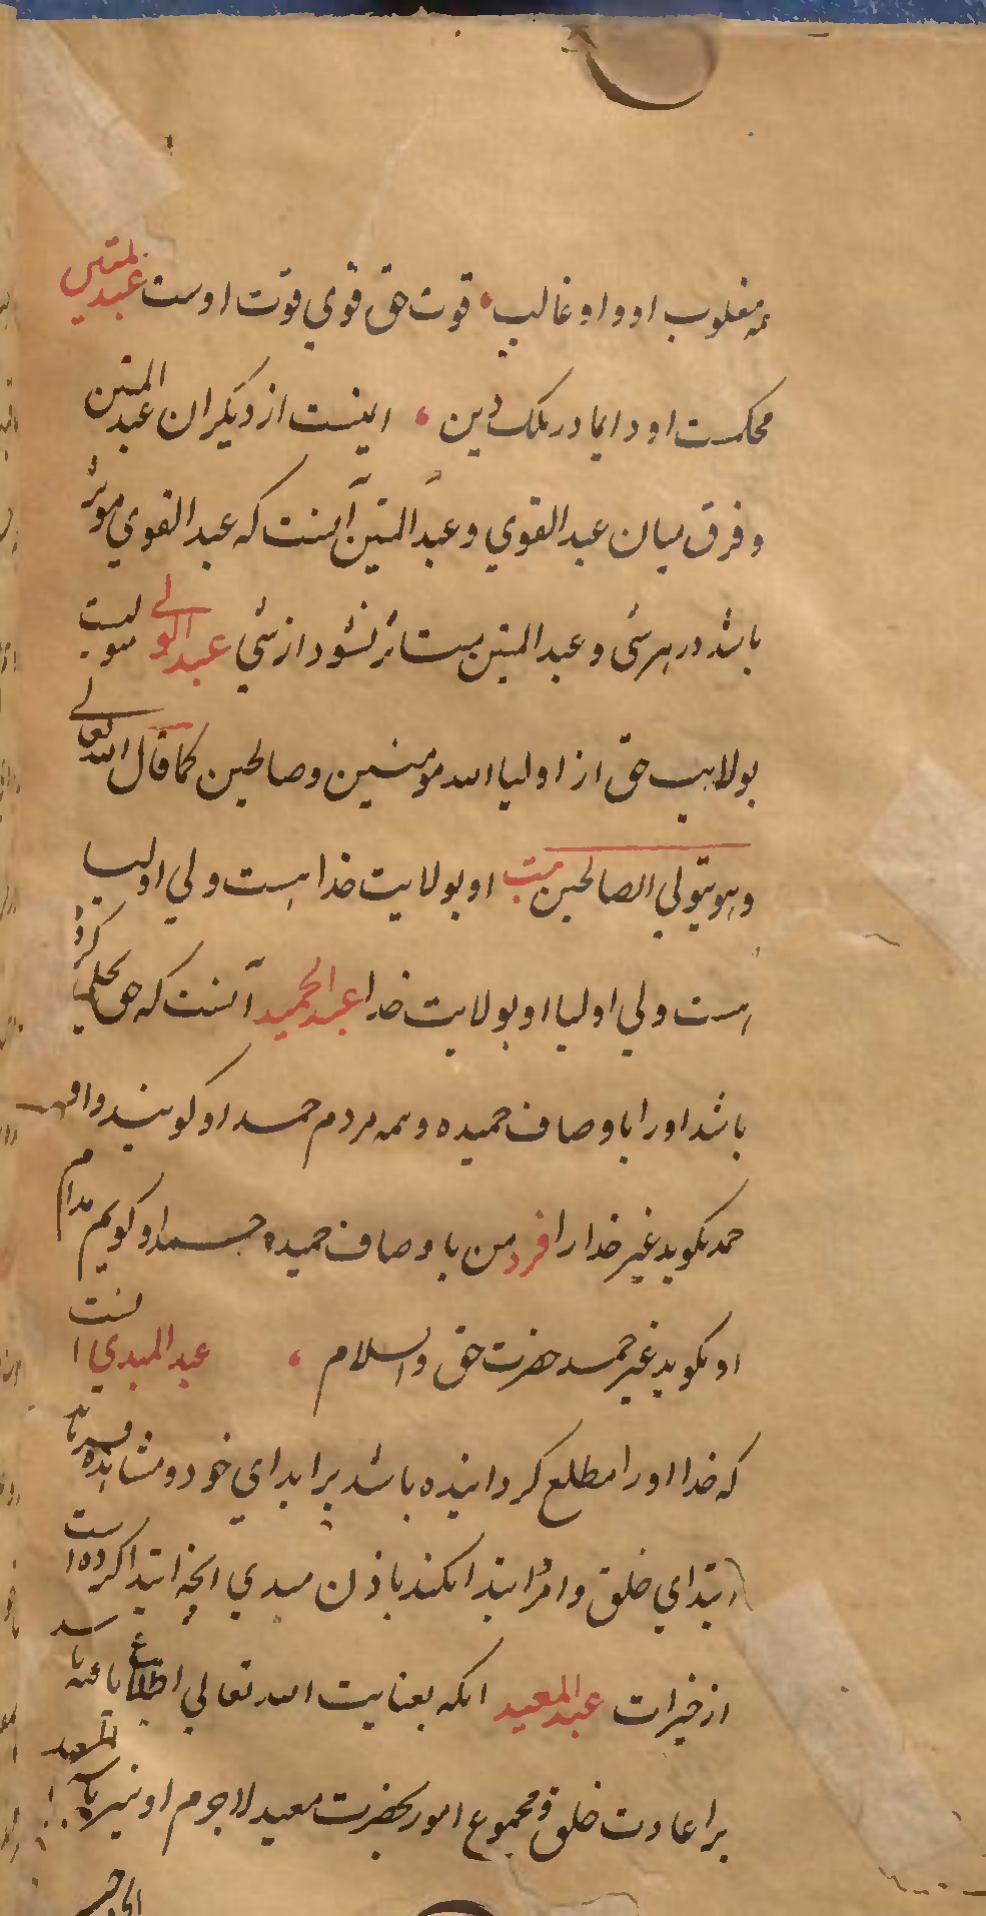 همه مغلوب او و او غالب ، قوت حق قوی قوت اوست عبد المتین
محکمست او دایما در ملک دین ، ایمنست از دیگران عبد المتین
و فرق میان عبد القوی و عبد المتین آنست که عبد القوی موثر
باشد در هر شی و عبد المتین متاثر نشود از شی عبد الولی
بولایت حق از اولیا الله مومنین و صالحین کما قال الله تعالی
و هو یتولی الصالحین بیت او بولایت خدا هست ولی اولیا
هست ولی اولیا او بولایت خدا عبد الحمید آنست که حق تجلی کرده
باشد او را باوصاف حمیده و همه مردم حمد او گویند و او
حمد نگوید غیر خدا را فرد من باوصاف حمیده حمد او گویم مدام
او نگوید غیر حمد حضرت حق والسلام ، عبد المبدی آنست
که خدا او را مطلع گردانیده باشد بر ابدای خود و مشاهده فرماید
ابتدای خلق و امر ابتدا کند باذن مبدی انچه ابتدا کرده است
از خیرات عبد المعید انکه بعنایت الله تعالی اطلاع یافته باشد
بر اعادت خلق و مجموع امور بحضرت معید لاجرم او نیز